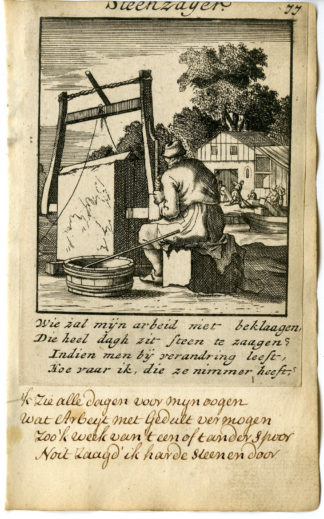 Steenzager.
77
Wie zal mijn arbeid niet beklaagen,
Die heel dagh zit steen te zaagen?
Indien men bij verandring leeft,
Hoe vaar ik, die ze nimmer heeft?
Ik Zie alle dagen voor mijn oogen
Wat Arbeijt met Gedult vermogen
Zoo'k week van't een of t ander spoor
Noit Zaagd' ik harde steenen door